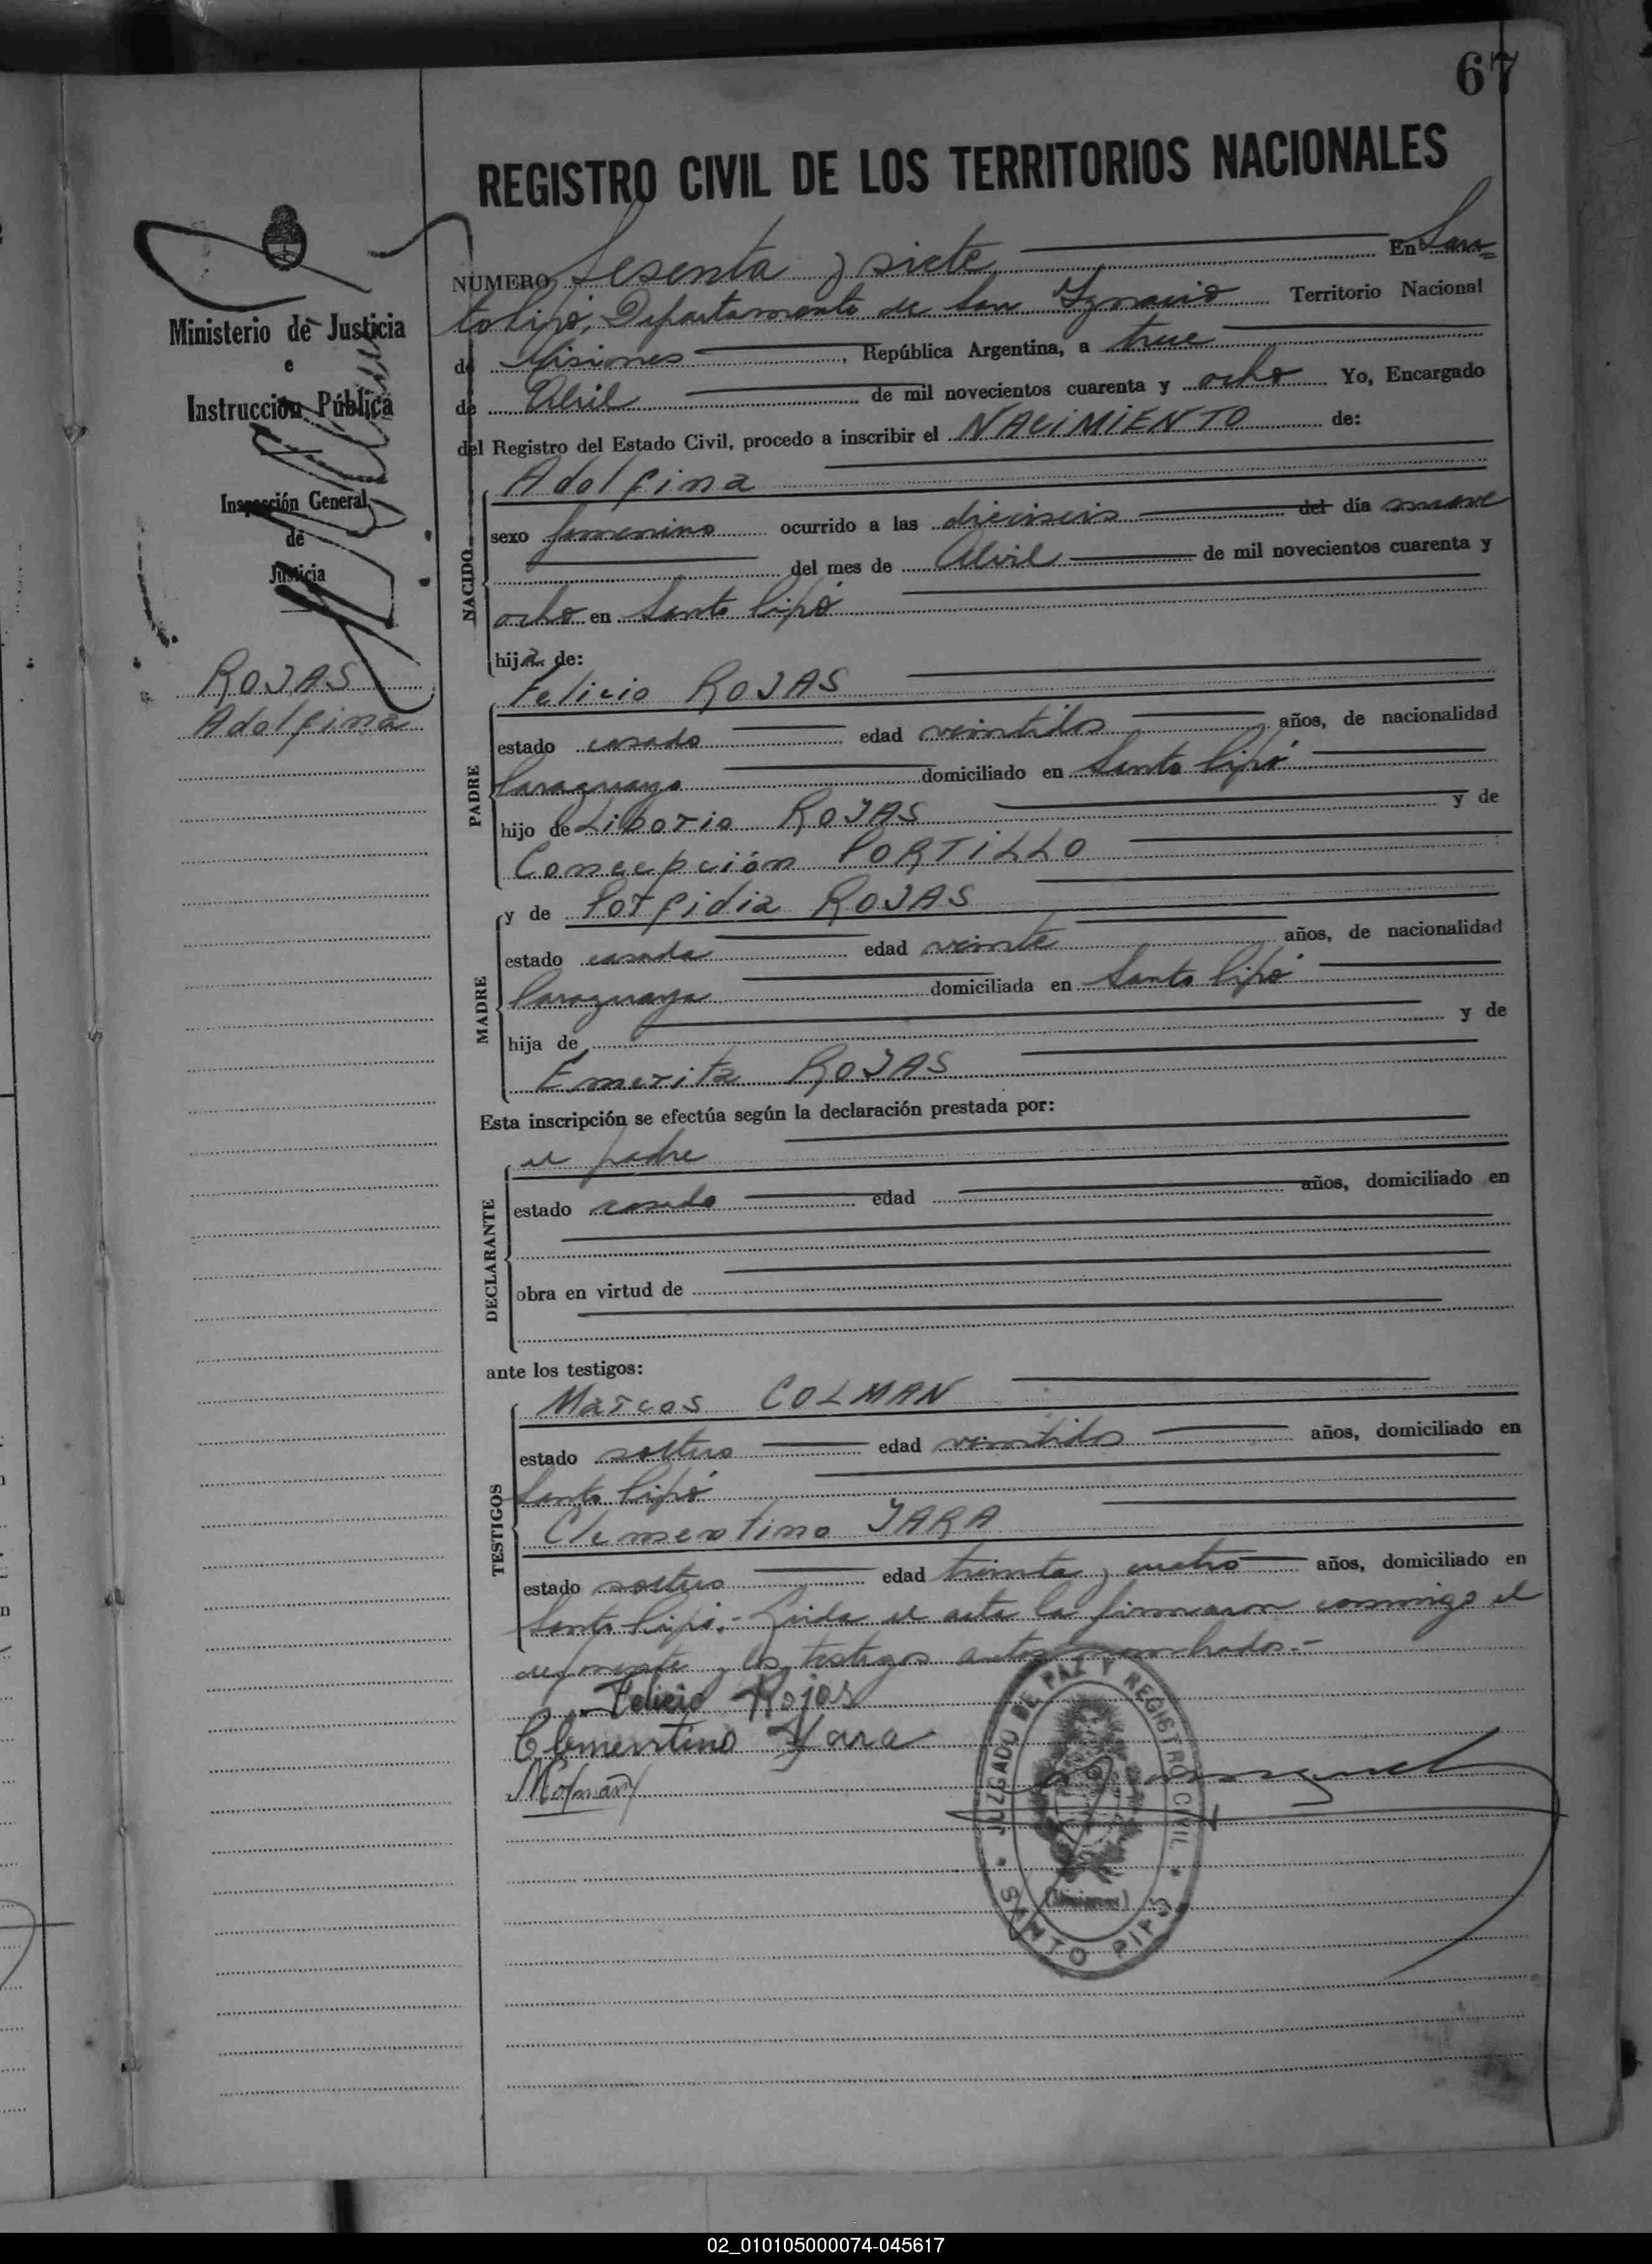 67
REGISTRO CIVIL DE LOS TERRITORIOS NACIONALES
Ministerio de Justicia
e
Instrucción Pública
Inspección General
de
Justicia
ROJAS
Adolfina
NUMERO Sesenta y siete En San=
to Pipó, Departamento de San Ignacio Territorio Nacional
de Misiones, República Argentina, a trece
de Abril de mil novecientos cuarenta y ocho Yo, Encargado
del Registro del Estado Civil, procedo a inscribir el NACIMIENTO de:
NACIDO
Adolfina
sexo femenino ocurrido a las dieciseis del día nueve
del mes de Abril de mil novecientos cuarenta y
ocho en Santo Pipó
hija de:
PADRE
Felicio ROJAS
estado casado edad veintidos años, de nacionalidad
Paraguayo domiciliado en Santo Pipó
hijo de Liborio ROJAS y de
Concepción PORTILLO
MADRE
y de Porfidia ROJAS
estado casada edad veinte años, de nacionalidad
Paraguaya domiciliada en Santo Pipó
hija de y de
Emerita ROJAS
Esta inscripción se efectúa según la declaración prestada por:
DECLARANTE
el padre
estado casado edad años, domiciliado en
obra en virtud de
ante los testigos:
TESTIGOS
Marcos COLMAN
estado soltero edad veintidos años, domiciliado en
Santo Pipó
Clementino JARA
estado soltero edad treinta y cuatro años, domiciliado en
Santo Pipó.- Leida el acta la firmaron conmigo el
deponente y los testigos antes nombrados.-
Felicio Rojas
Clementino Jara
JUZGADO DE PAZ Y REGISTRO CIVIL
(Misiones)
SANTO PIPÓ
02_010105000074-045617